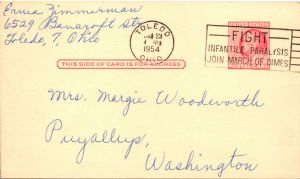 Erma Zimmerman
6529 Bancroft str
Toledo, 7, Ohio
TOLEDO
1954
OHIO
FIGHT
INFANTILE PARALYSIS
JOIN MARCH OF DIMES
THIS SIDE OF CARD IS FOR ADDRESS
Mrs. Margie Woodworth
Puyallup,
Washington